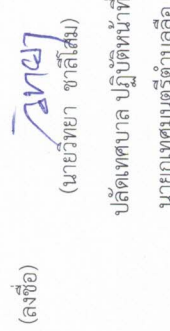 (ลงชื่อ) วิทยา
(นายวิทยา ชาลีโสม)
ปลัดเทศบาล ปฏิบัติหน้าที่
นายกเทศมนตรีตำบลลือ